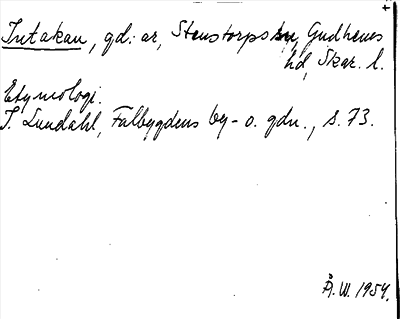 Intakan, gd: ar, Stenstorps sn, Gudhems
hd, Skar. l.
Etymologi.
I. Lundahl, Falbygdens by- o. gdn., s. 73.
Å. W. 1954.